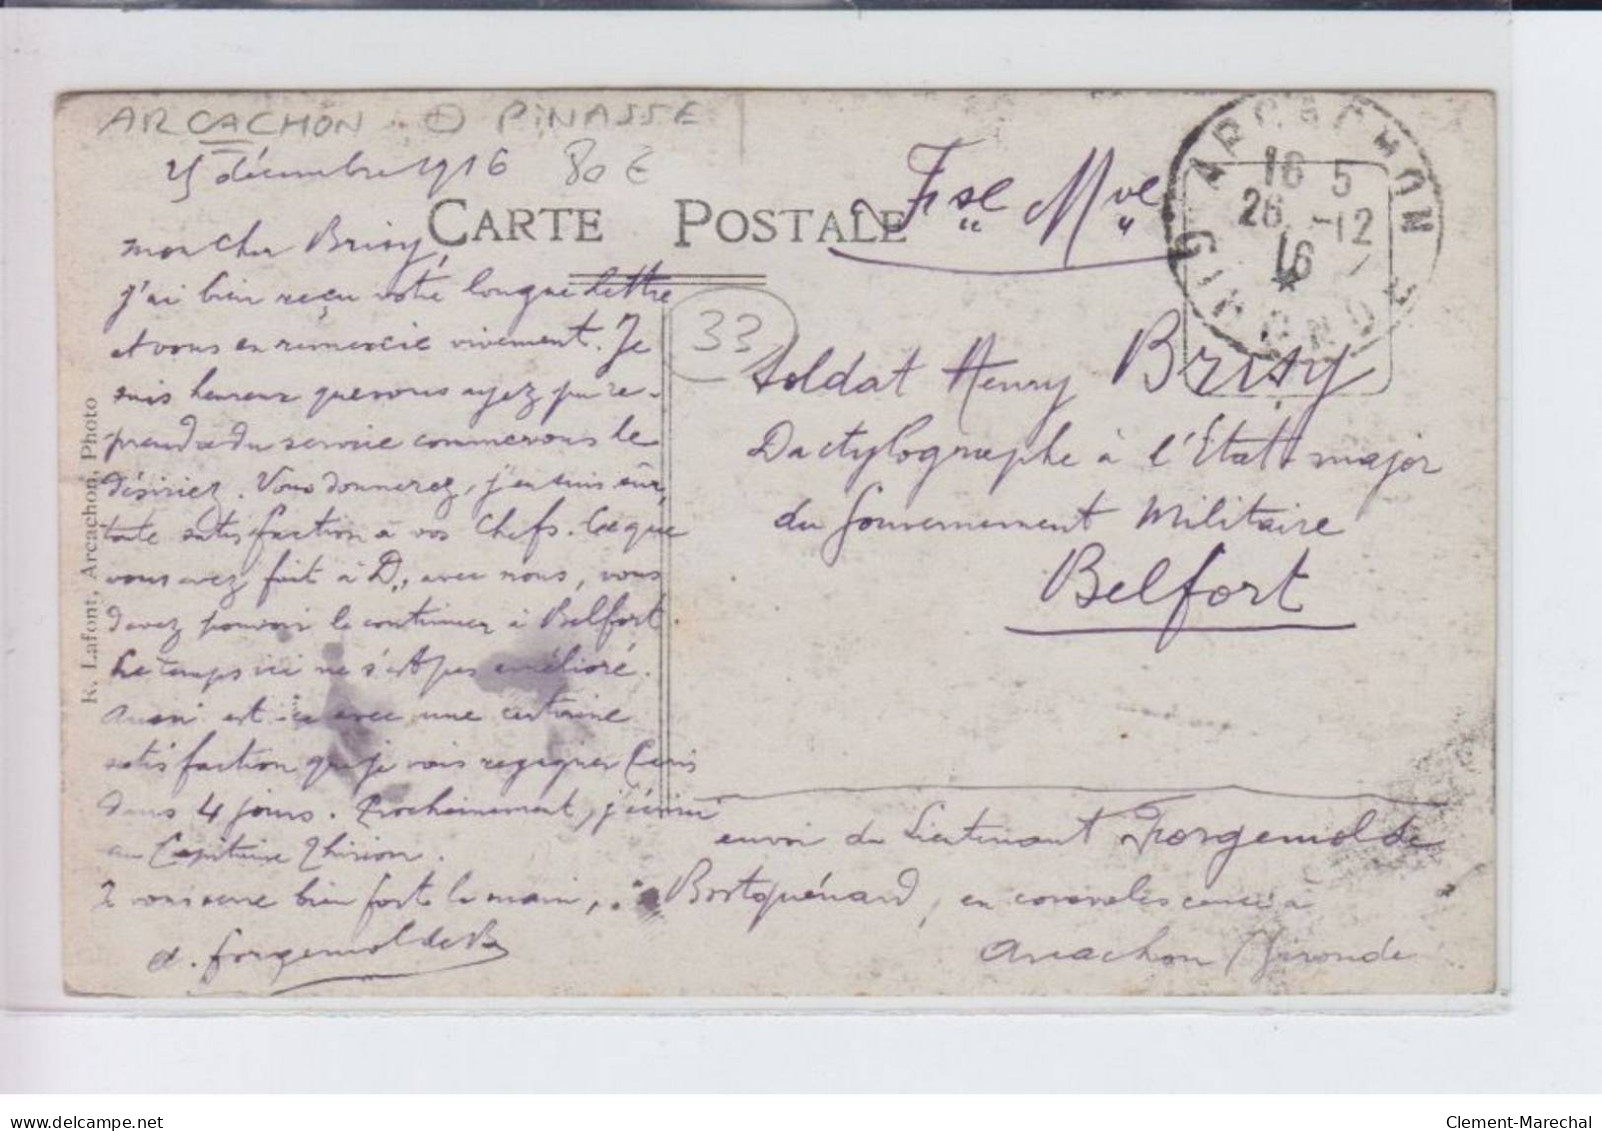 ARCACHON PINASSE
25 décembre 1916 80 €
CARTE POSTALE
Fse Mve
ARCACHON
16 5
26 -12
16
GIRONDE
33
mon cher Brisy,
j'ai bien reçu votre longue lettre
et vous en remercie vivement. Je
suis heureux que vous ayez pu re-
prendre du service comme vous le
désiriez. Vous donnerez, j'en suis sûr,
toute satisfaction à vos chefs. Ce que
vous avez fait à D., avec nous, vous
devez pouvoir le continuer à Belfort.
Le temps ici ne s'est pas amélioré.
Aussi est-ce avec une certaine
satisfaction que je vais regagner Paris
dans 4 jours. Prochainement, j'écrirai
au Capitaine Thirion.
Je vous serre bien fort la main,
A. Forgemol de B
Soldat Henry Brisy
Dactylographe à l'Etat-major
du Gouvernement Militaire
Belfort
envoi du Lieutenant Forgemol de
Bostquénard, en convalescence à
Arcachon Gironde
K. Lafont, Arcachon, Photo
www.delcampe.net
Clement-Marechal